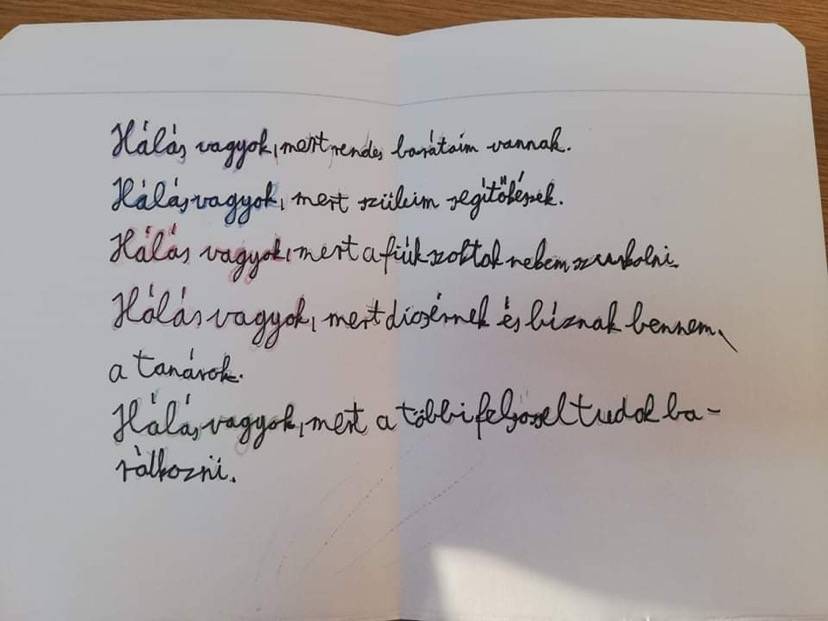 Hálás vagyok, mert rendes barátaim vannak.
Hálás vagyok, mert szüleim segítőkészek.
Hálás vagyok, mert a fiúk szoktak nekem szurkolni.
Hálás vagyok, mert dicsérnek és bíznak bennem
a tanárok.
Hálás vagyok, mert a többi felsőssel tudok ba-
rátkozni.